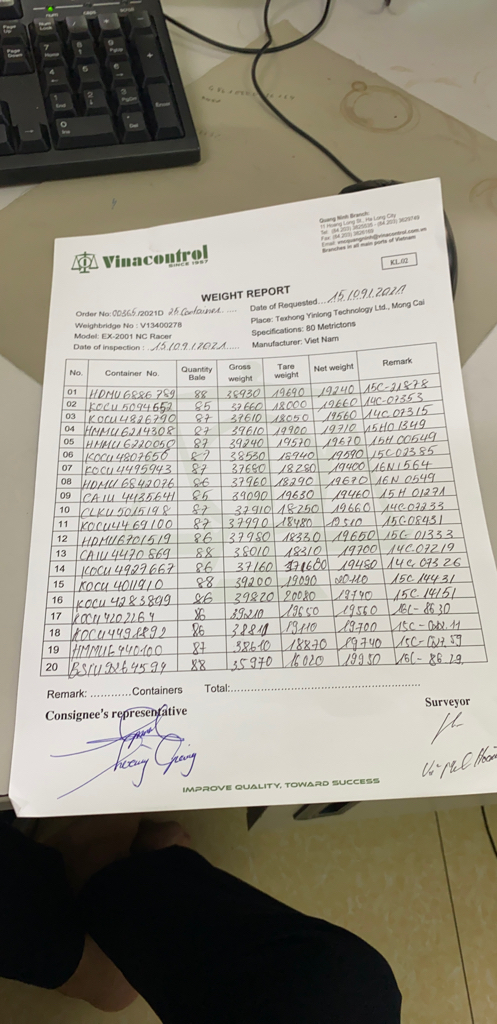 Vinacontrol
SINCE 1957
Quang Ninh Branch:
11 Hoang Long St., Ha Long City
Branches in all main ports of Vietnam
KL.02
WEIGHT REPORT
Order No: 00365/2021D 26 Container
Date of Requested... 15/09/2021
Weighbridge No : V13400278
Place: Texhong Yinlong Technology Ltd., Mong Cai
Model: EX-2001 NC Racer
Specifications: 80 Metrictons
Date of inspection : 15/09/2021
Manufacturer: Viet Nam
No. Container No. Quantity Bale Gross weight Tare weight Net weight Remark
01 HDMU6886789 88 38930 19690 19240 15C-21878
02 KOCU5094652 85 37660 18000 19660 14C-07353
03 KOCU4826790 87 37610 18050 19560 14C 07315
04 HMMU6214308 87 39610 19900 19710 15H01349
05 HMMU6220050 87 39240 19570 19670 15H 00549
06 KOCU4807656 87 38530 18940 19590 15C02385
07 KOCU4495943 87 37680 18280 19400 16N1564
08 HDMU6842076 86 37960 18290 19670 16N 0549
09 CAIU4435641 85 39090 19630 19460 15H 01271
10 CLKU5015198 87 37910 18250 19660 14C-07233
11 KOCU4469100 87 37990 18480 19510 15C-08451
12 HDMU6701519 86 37980 18330 19650 15C 01333
13 CAIU4470869 88 38010 18310 19700 14C-07219
14 KOCU4929667 86 37160 19480 14C 07326
15 KOCU4011910 88 39200 19090 20110 15C 14431
16 KOCU4283899 86 39820 20080 19740 15C 14151
17 KOCU4202264 86 39210 19650 19560 16L-8630
18 KOCU4498892 86 19110 19700
19 HMMU6440100 87 38610 18870 19740
20 88 35970 16020 19950
Remark: ............Containers Total:
Consignee's representative
Surveyor
IMPROVE QUALITY, TOWARD SUCCESS